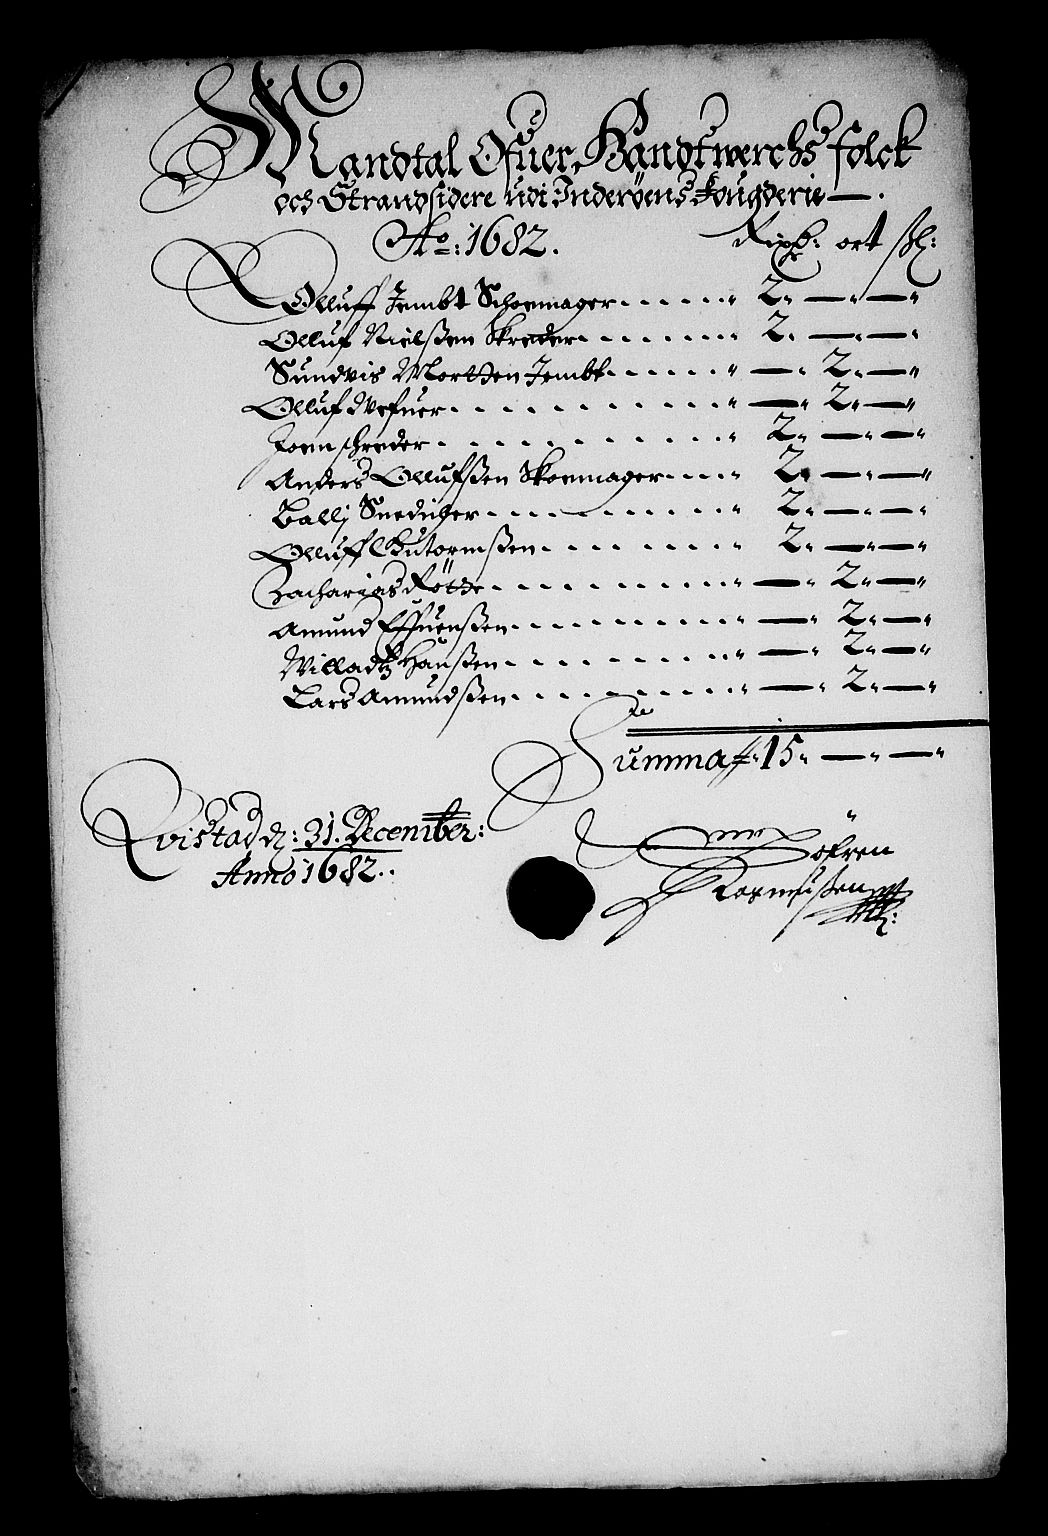 Mandtal Ofuer Handtwerchs folck
och Strandsidere udi Inderøens fougderie —.
Ao: 1682. Rixd: ort sk:
Olluff Jembt Schoemager 2 — —
Olluf Nielsen Skreder 2 — —
Sundvis Mortten Jembt — 2 —
Olluf Wefuer — 2 —
Joen schreder 2 — —
Anders Ollufsen Skoemager 2 — —
Ballj Snediker 2 — —
Olluff Gutormsen 2 — —
Zacharias Røtte — 2 —
Amund Effuensen — 2 —
Willadtz Hansen — 2 —
Lars Amundsen — 2 —
Summa 15 — —
Qvistad d: 31. December:
Anno 1682.
Søfren
Rasmussen